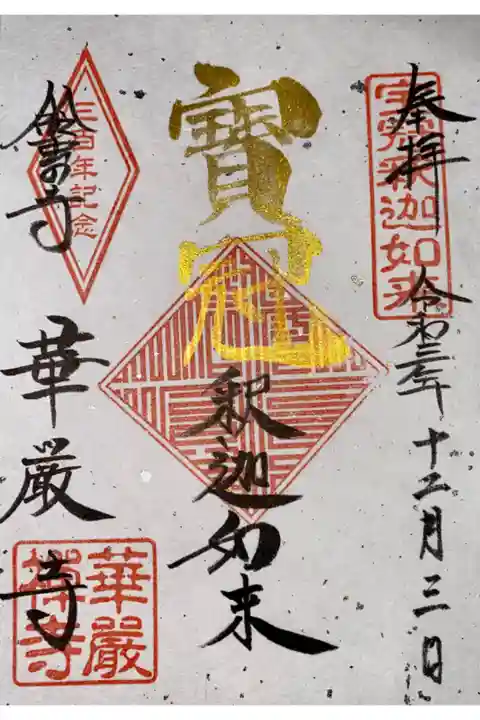 奉拝
宝冠釈迦如来
令和三年十二月三日
寳冠釈迦如来
三百年記念
鈴虫の寺
華厳寺
華嚴禅寺